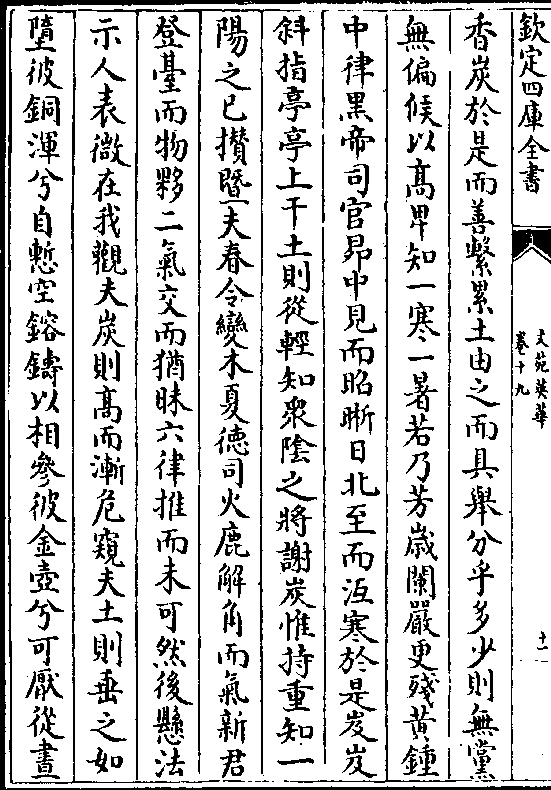 欽定四庫全書
文苑英華
卷十九
十一
香炭於是而善繫累土由之而具舉分乎多少則無黨
無偏候以髙卑知一寒一暑若乃芳歲闌嚴更殘黃鍾
中律黑帝司官昴中見而昭晰日北至而沍寒於是岌岌
斜指亭亭上干土則從輕知衆陰之將謝炭惟持重知一
陽之已攅曁夫春令變木夏德司火鹿解角而氣新君
登臺而物夥二氣交而猶昧六律推而未可然後懸法
示人表微在我觀夫炭則髙而漸危窺夫土則垂之如
墮彼銅渾兮自慙空鎔鑄以相參彼金壺兮可厭從晝